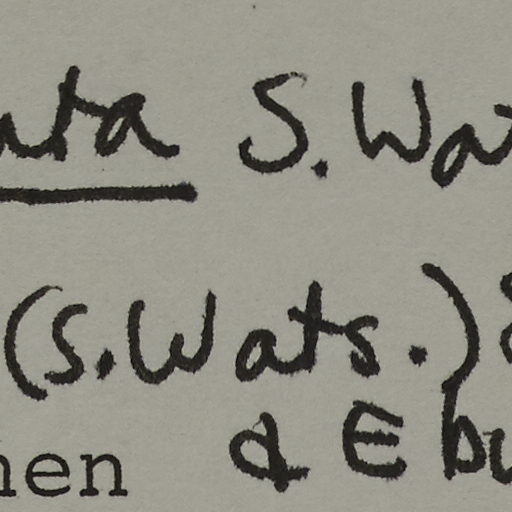 ata S. Wat
(S. Wats.)
& E bu
hen